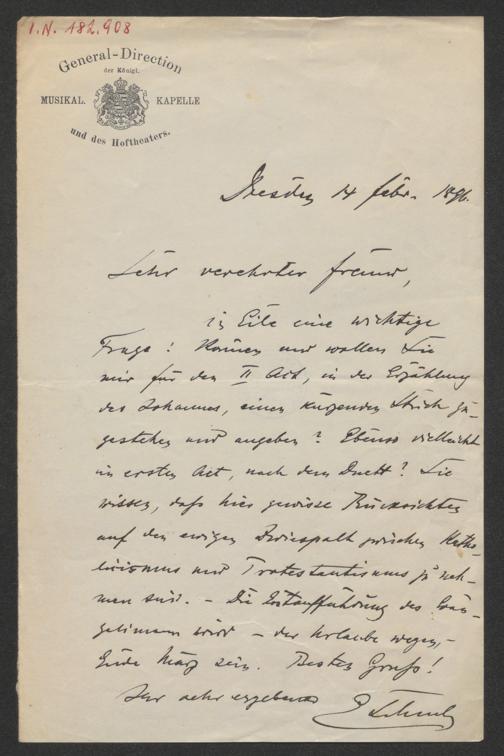 I.N. 182.908
General-Direction
der Königl.
MUSIKAL. KAPELLE
und des Hoftheaters.
Dresden 14 Febr. 1896.
Sehr verehrter Freund,
in Eile eine wichtige
Frage! Können und wollen Sie
mir für den II Act, in der Erzählung
des Johannes, einen kürzenden Strich zu-
gestehen und angeben? Ebenso vielleicht
im ersten Act, nach dem Duett? Sie
wissen, daß hier gewisse Rücksichten
auf den ewigen Zwiespalt zwischen Katho-
licismus und Protestantismus zu neh-
men sind. – Die Erstaufführung des Evan-
gelimann wird – der Urlaube wegen, –
Ende März sein. Besten Gruß!
Ihr sehr ergebener
E Schuch